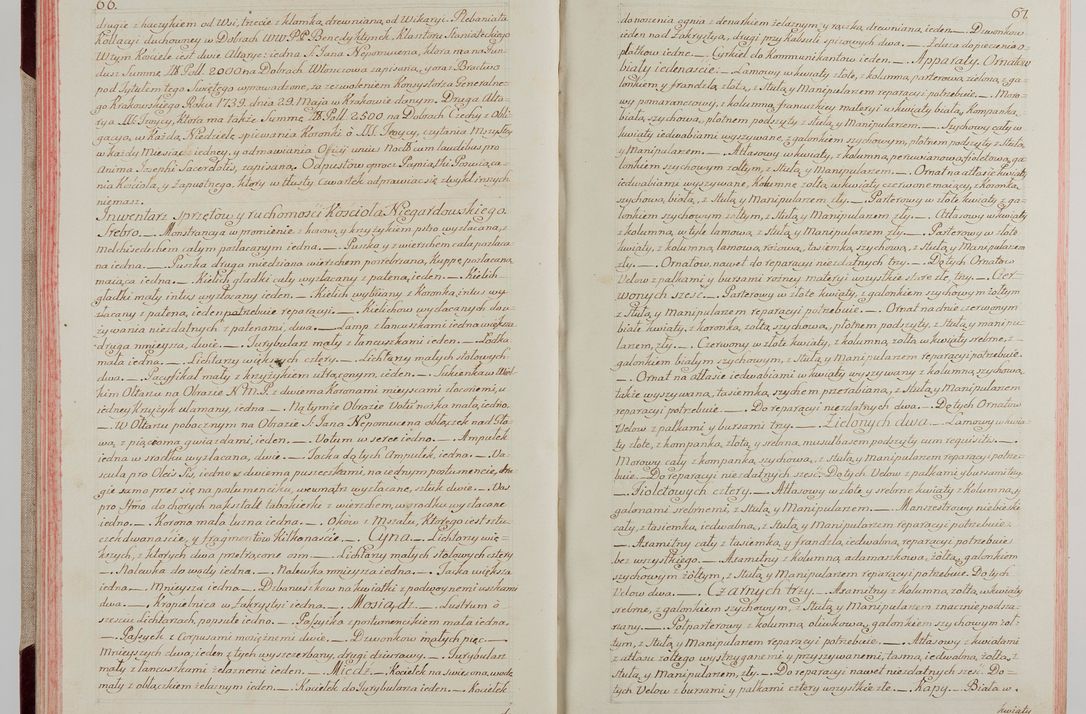 66.
drugie z haczykiem od Wsi, trzecie z klamką drewnianą od Wikaryi. Plebania ta
Kollacyi duchowney w Dobrach WW. PP. Benedyktynek Klasztoru Staniąteckiego
W tym Kościele jest dwie Altarye: iedna S. Jana Nepomucena, ktora ma na Fun=
dusz Summę Zł. Poll. 2.000 na Dobrach Wtończowa zapisaną, y oraz Bractwo
pod Tytułem tego Swiętego wprowadzone, za zezwoleniem Konsystorza Generalne=
go Krakowskiego Roku 1739. dnia 29. Maja w Krakowie danym. Druga Alta=
rya SS. Troycy, ktora ma także Summę Zł. Poll. 2.500 na Dobrach Czechy z Obli=
gacyą, w każdą Niedzielę spiewania Koronki o SS. Troycy, czytania Mszy Stey
w każdy Miesiąc iedney, y odmawiania Oficyi unius Noct. cum laudibus pro
Anima Josephi Sacerdotis, zapisaną. Odpustow oprocz Pamiątki Poswiąca=
nia Kościoła, y zapustnego, ktory w tłusty Czwartek odprawiac się zwykł innych
niemasz.
Inwentarz sprzętow y ruchomości Kościoła Niegardowskiego.
Srebro. — Monstrancya w promienie z koroną y krzyżykiem pstro wyzłacana, z
Melchisedechem całym pozłacanym iedna. — Puszka y z wierzchem cała pozłaca=
na iedna. — Puszka druga miedziana wierzchem posrebrzana, kuppę pozłacaną
maiąca iedna. — Kielich gładki cały wyzłacany z pateną, ieden. — Kielich
gładki mały intus wyzłacany ieden. — Kielich wybiiany z Koronką, intus wy=
złacany z pateną, ieden potrzebuie reparacyi. — Kielichow wyzłacanych do u=
żywania niezdatnych z patenami, dwa. — Lamp z łancuszkami iedna większa
druga mnieysza, dwie. — Turybularz mały z łancuszkami ieden. — Łodka
mała iedna. — Lichtarzy większych cztery. — Lichtarzy małych stołowych
dwa. — Pacyfikał mały z krzyżykiem utrąconym, ieden. — Sukienka w Wiel=
kim Ołtarzu na Obrazie N. M. P. z dwiema Koronami mieyscami złoconemi, u
iedney krzyżyk ułamany, iedna. — Na tymże Obrazie Vota noska mała, iedno.
— W Ołtarzu pobocznym na Obrazie S. Jana Nepomucena obłączek nad Gło=
wą, z piącioma gwiazdami, ieden. — Votum w serce iedno. — Ampułek
iedna w srodku wyzłacana, dwie. — Tacka do tych Ampułek, iedna. — Va=
scula pro Oleis Sis, iedno z dwiema puszeczkami, na iednym postumencie, dru=
gie samo przez się na postumenciku, wewnątrz wyzłacane, sztuk dwie. — Vas
pro SSmo do chorych na kształt tabakierki z wierzchem, w srodku wyzłacane
iedno. — Korona mała luzna iedna. — Okow z Mszału, którego iest sztu=
czek dwanascie, y fragmentow kilkanascie. — Cyna. — Lichtarzy wię=
kszych, z których dwa przetrącone osm. — Lichtarzy małych stołowych cztery
— Nalewka do wody iedna. — Nalewka mnieysza iedna. — Taska większa
iedna. — Mnieysza iedna. — Dzbanuszkow na kwiatki z podwoynemi uszkami
dwa. — Kropielnica w Zakrystyi iedna. — Mosiądz. — Lustrum o
szesciu lichtarzach, popsute iedno. — Passyika z postumenczikiem mała iedna.
— Passyek z Corpusami mosięznemi dwie. — Dzwonkow małych pięc. —
Mnieyszych dwa, ieden z tych wyszczerbany, drugi dziurawy. — Turybularz
mały z łancuszkami żelaznemi ieden. — Miedz. — Kociełek na święconą wodę
mały z obłączkiem żelaznym ieden. — Kociełek do Turybularza ieden. — Kociełek
67.
do noszenia ognia z denarkiem żelaznym, y rączką drewnianą ieden. — Dzwonkow
ieden nad Zakrystyą, drugi przy kabsule spiżowych dwa. — Żelaza do pieczenia o=
płatkow iedne. — Cyrkiel do Kommunikantow ieden. — Apparaty. Ornatow
biały iedenascie. — Lamowy w kwiaty złote, z kolumną parterową zieloną, z ga=
lonkiem y frandzlą złotą, z Stułą y Manipularzem reparacyi potrzebuie. — Moro=
wy pomaranczowy, z kolumną francuzkiey materyi w kwiaty białą, kompanką
białą szychową, płotnem podszyty z Stułą y Manipularzem. — Szychowy cały w
kwiaty iedwabiami wyszywane, z galonkiem szychowym, płotnem podszyty z Stułą
y Manipularzem. — Atłasowy w kwiaty, z kolumną, peruwianową, fioletową, ga=
lonkiem szychowym żołtym, z Stułą y Manipularzem. — Ornat na atłasie kwiaty
iedwabiami wyszywane, Kolumnę żołtą w kwiaty czerwone maiący, z koronką
szychową białą, z Stułą y Manipularzem zły. — Parterowy w złote kwiaty, z ga=
lonkiem szychowym żołtym, z Stułą y Manipularzem zły. — Atłasowy w kwiaty
z kolumną, w tyle lamową, z Stułą y Manipularzem zły. — Parterowy w złote
kwiaty, z kolumną lamową, rożową, tasiemką szychową, z Stułą y Manipularzem
zły. — Ornatow nawet do reparacyi niezdatnych trzy. — Do tych Ornatow
Velow z palkami y bursami rożney materyi wszystkie stare złe, trzy. — Czer=
wonych szesc. — Parterowy w złote kwiaty, z galonkiem szychowym żołtym
z Stułą y Manipularzem reparacyi potrzebuie. — Ornat na dnie czerwonym
białe kwiaty, z koronką, żołtą szychową, płotnem podszyty, z Stułą y manipu=
larzem, zły. — Czerwony w złote kwiaty, z kolumną, żołtą w kwiaty srebrne, z
galonkiem białym szychowym, z Stułą y Manipularzem reparacyi potrzebuie.
— Ornat na atłasie iedwabiami w kwiaty wyszywany z kolumną szychową
także wyszywaną, tasiemką szychem przerabianą, z Stułą y Manipularzem
reparacyi potrzebuie. — Do reparacyi niezdatnych dwa. — Do tych Ornatow
Velow z palkami y bursami trzy. — Zielonych dwa. — Lamowy w kwia=
ty złote, z kompanką, złotą y srebrną, musułbasem podszyty cum requisitis. —
Morowy cały z kompanką szychową, z Stułą y Manipularzem reparacyi potrze=
buie. — Do reparacyi niezdatnych szesc. Do tych Velow z palkami y bursami trzy
— Fioletowych cztery. — Atłasowy w złote y srebrne kwiaty z Kolumną, y
galonami srebrnemi, z Stułą y Manipularzem. — Monzestrowy niebieski
cały, z tasiemką, iedwabną, z Stułą y Manipularzem reparacyi potrzebuie.
— Axamitny cały z tasiemką, y frandzlą, iedwabną, reparacyi potrzebuie
bez wszystkiego. — Axamitny z kolumną, adamaszkową, żołtą, galonkiem
szychowym żołtym, z Stułą y Manipularzem reparacyi potrzebuie. Do tych
Velow dwa. — Czarnych trzy. — Axamitny z kolumną, żołtą, w kwiaty
srebrne, z galonkiem szychowym, z Stułą y Manipularzem znacznie podsza=
rzany. — Połparterowy z kolumną oliwkową, galonkiem szychowym żoł=
tym, z Stułą y Manipularzem reparacyi potrzebuie. — Atłasowy z kwiatami
z atłasu żołtego wystrzyganemi y przyszywanemi, tasmą, iedwabną, żołtą, z
Stułą y Manipularzem, zły. — Do reparacyi nawet niezdatnych szesc. Do=
tych Velow z bursami y palkami cztery wszystkie złe. — Kapy. — Biała w
kwiaty